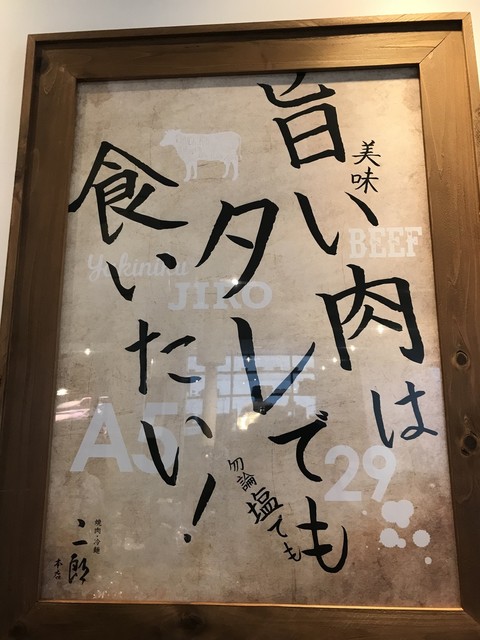 旨い肉は
美味
タレでも
勿論塩でも
食いたい！
BEEF
Yakiniku
JIRO
A5
29
焼肉・冷麺
二郎
本店